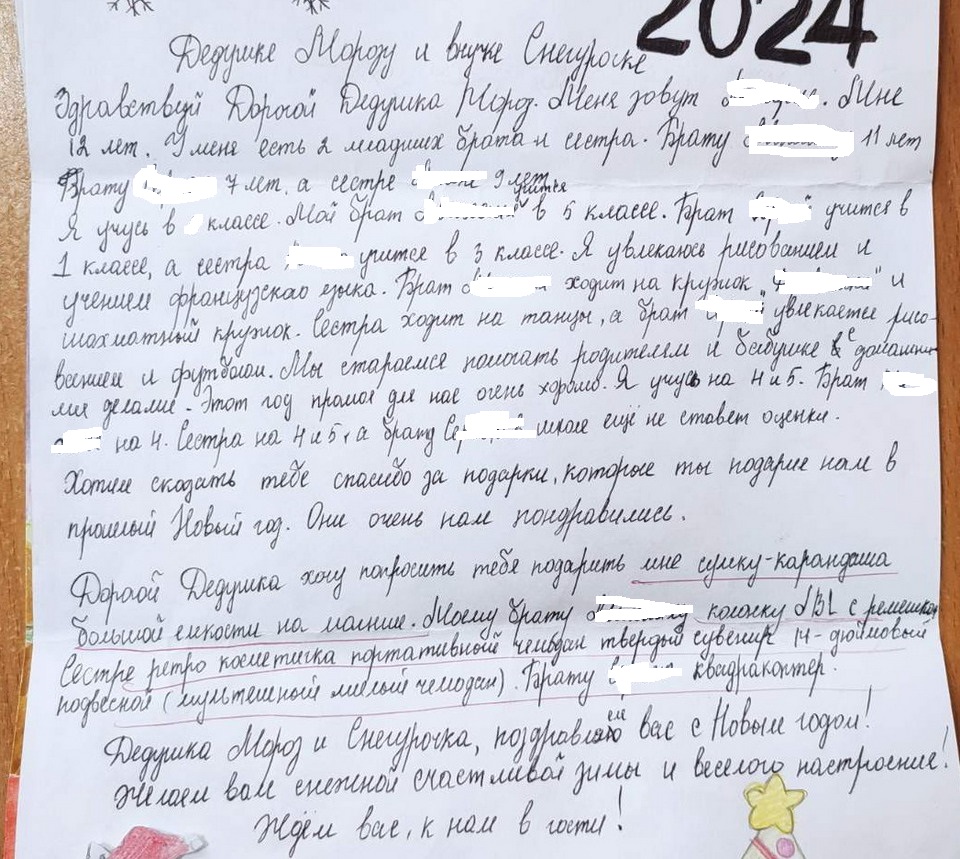 2024
Дедушке Морозу и внучке Снегуроске
Здравствуй Дорогой Дедушка Мороз. Меня зовут . Мне
12 лет. У меня есть 2 младших брата и сестра. Брату 11 лет
Брату 7 лет, а сестре 9 лет
учится
Я учусь в классе. Мой брат в 5 классе. Брат учится в
1 классе, а сестра учится в 3 классе. Я увлекаюсь рисованием и
учением французского языка. Брат ходит на кружок " " и
шахматный кружок. Сестра ходит на танцы, а брат увлекается рисо-
ванием и футболом. Мы стараемся помогать родителям и бабушке с домашни-
ми делами. Этот год прошёл для нас очень хорошо. Я учусь на 4 и 5. Брат
на 4. Сестра на 4 и 5, а брату школе ещё не ставят оценки.
Хотим сказать тебе спасибо за подарки, которые ты подарил нам в
прошлый Новый год. Они очень нам пондравились.
Дорогой Дедушка хочу попросить тебя подарить мне сумку-карандаша
большой емкости на молнии. Моему брату колонку JBL с ремешком
Сестре ретро косметичка портативной чемодан твердый сувенир 14-дюймовый
подвесной (мультяшной милый чемодан). Брату квадракоптер.
Дедушка Мороз и Снегурочка, поздравляем вас с Новым годом!
Желаем вам снежной счастливой зимы и веселого настроение!
Ждём вас, к нам в гости!